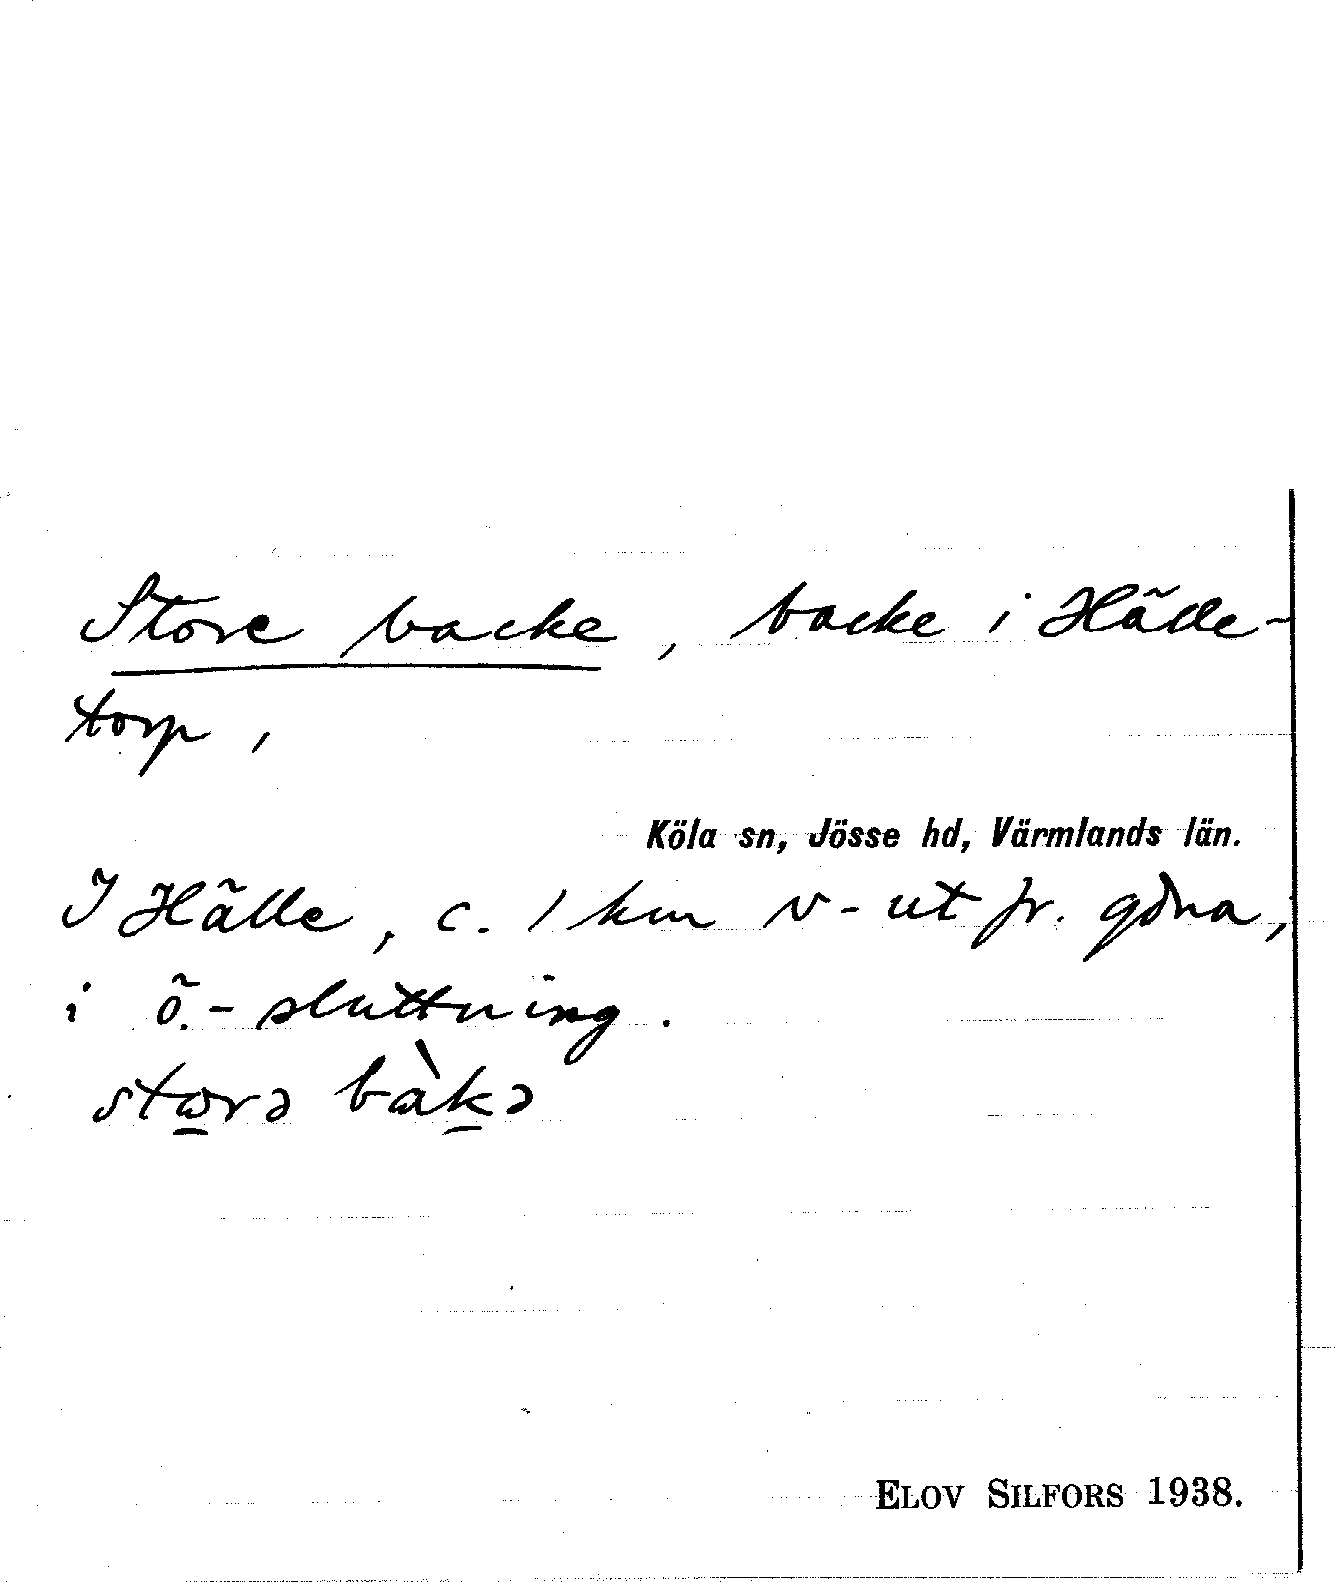 Store backe, backe i Hälle-
torp,
Köla sn, Jösse hd, Värmlands län.
I Hälle, c. 1 km v-ut fr. gdna,
i ö.-sluttning.
stɯrə bàkə
ELOV SILFORS 1938.